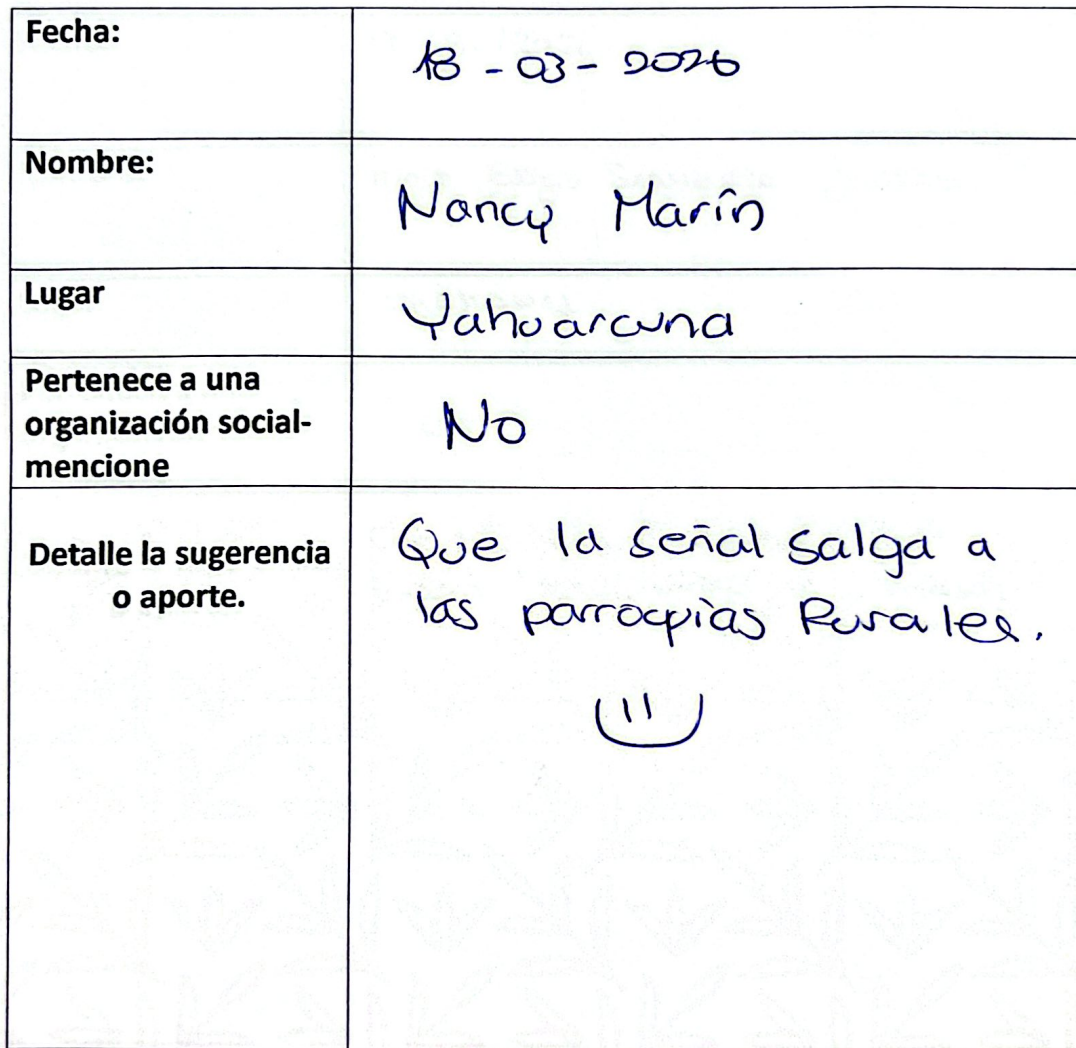 Fecha:
18 - 03 - 2026
Nombre:
Nancy Marín
Lugar
Yahuarcuna
Pertenece a una
organización social-
mencione
No
Detalle la sugerencia
o aporte.
Que la señal salga a
las parroquias Rurales.